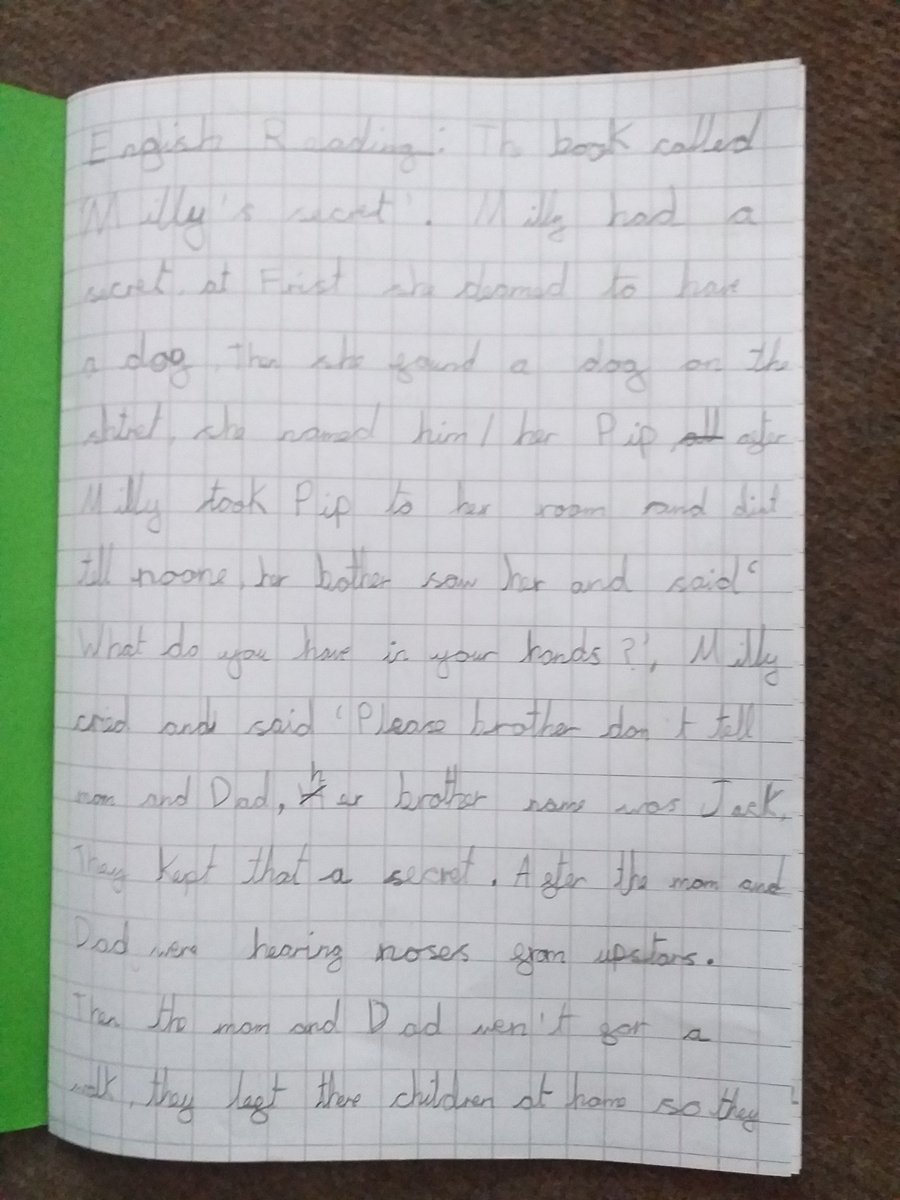 Engish Reading: Th book called
'Milly's secret'. Milly had a
secret, at Frist she deamed to have
a dog, then she found a dog on the
shtret, she named him/her Pip after
Milly took Pip to her room and dint
tell noone, her bother saw her and said'
What do you have in your hands?', Milly
cried and said 'Please brother don't tell
mom and Dad, her brother name was Jack,
They kept that a secret. After the mom and
Dad were hearing noses from upstars.
Then the mom and Dad wen't for a
walk, they left there children at home so they